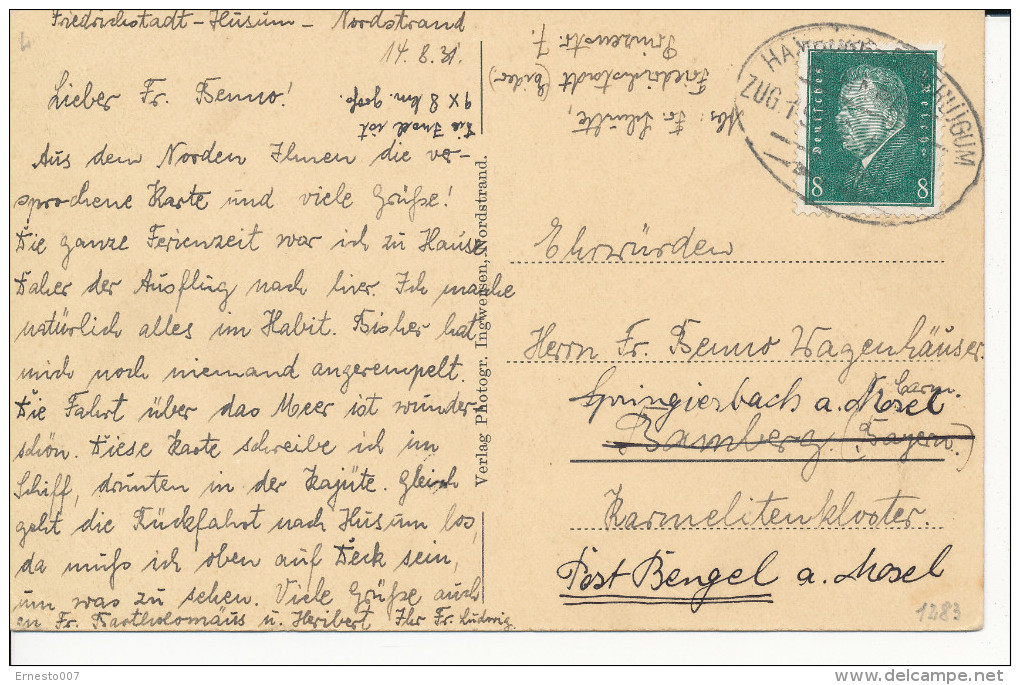 Friedrichstadt-Husum - Nordstrand
14.8.31.
Lieber Fr. Benno!
Die Insel ist
9 x 8 km. groß
Aus dem Norden Ihnen die ver-
sprochene Karte und viele Grüße!
Die ganze Ferienzeit war ich zu Hause
Daher der Ausflug nach hier. Ich mache
natürlich alles im Habit. Bisher hat
mich noch niemand angerempelt.
Die Fahrt über das Meer ist wunder-
schön. Diese Karte schreibe ich im
Schiff, drunten in der Kajüte. Gleich
geht die Rückfahrt nach Husum los,
da muß ich oben auf Deck sein,
um was zu sehen. Viele Grüße auch
an Fr. Bartholomäus u. Heribert Ihr Fr. Ludwig.
Verlag Photogr. Ingwersen, Nordstrand.
Abs: Fr. Schulte,
Friedrichstadt (Eider)
Prinzenstr. 7.
ZUG 1
Deutsches Reich
8 8
Ehrwürden
Herrn Fr. Benno Wagenhäuser
Carm.
Springiersbach a. Mosel
Bamberg (Bayern.)
Karmelitenkloster.
Post Bengel a. Mosel
1283
Ernesto007
delcampe.net